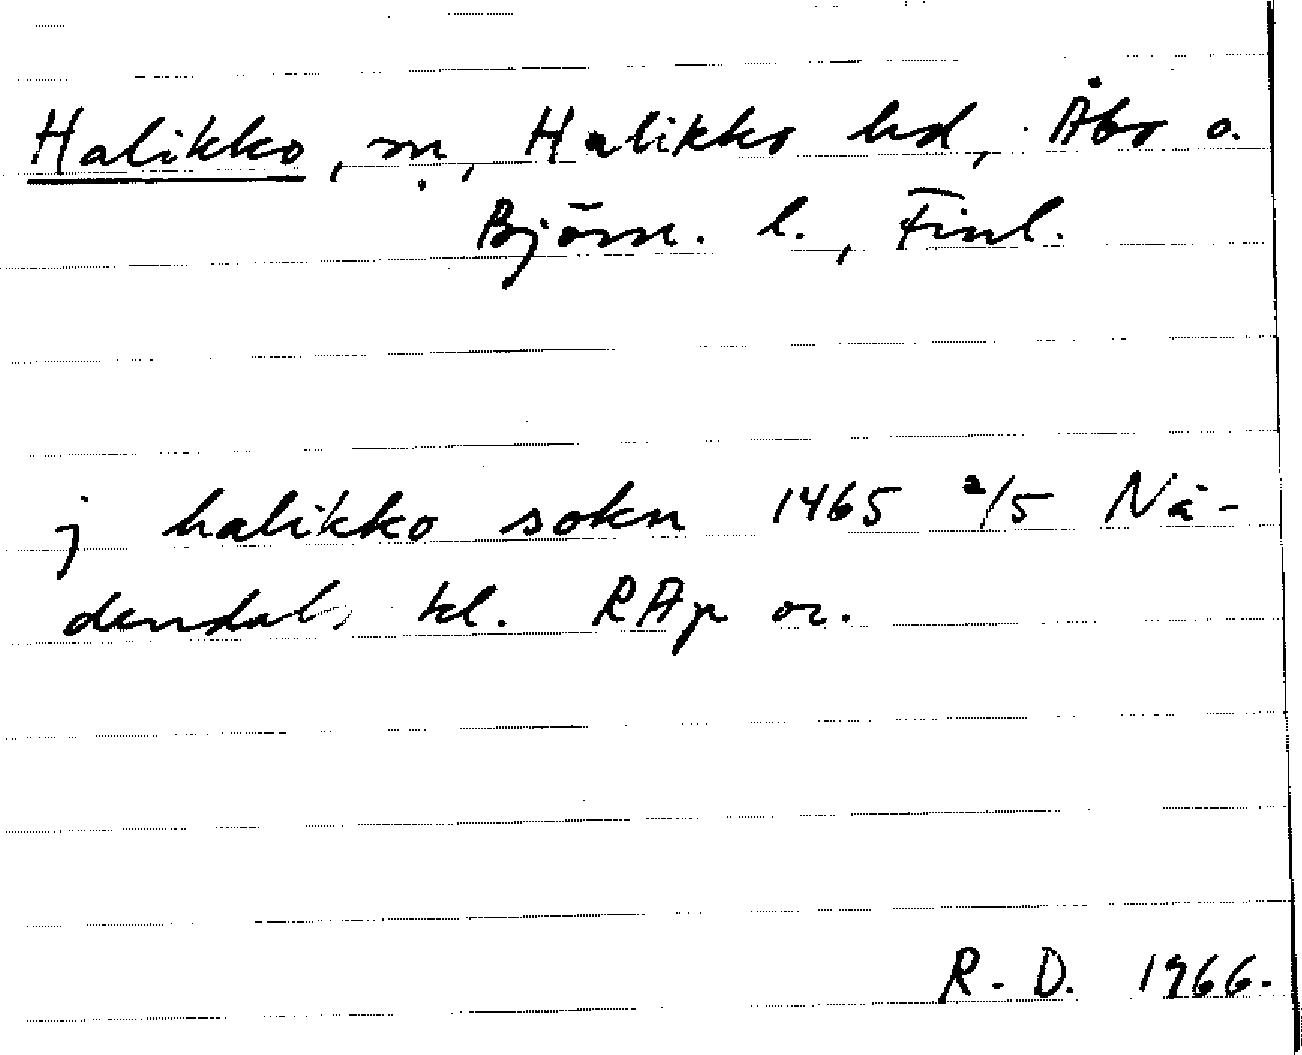 Halikko, sn, Halikko hd, Åbo o.
Björn. l., Finl.
j halikko sokn 1465 2/5 Nå-
dendals kl. RAp or.
R. D. 1966.